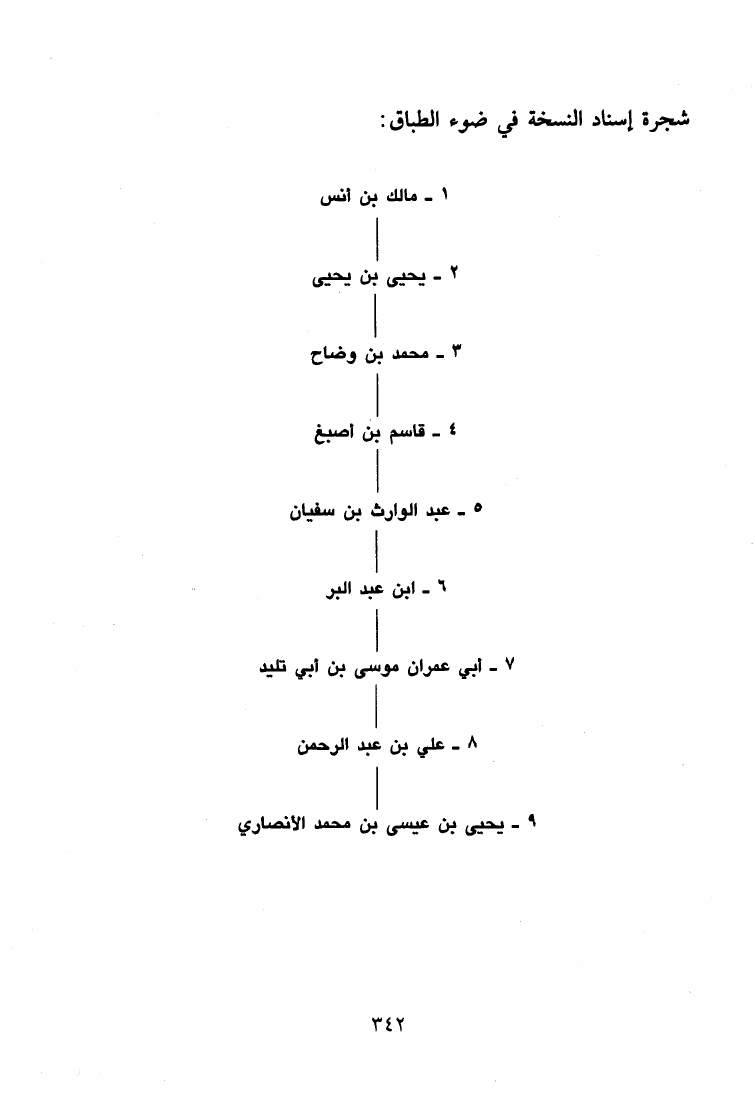 شجرة إسناد النسخة في ضوء الطباق:
١ - مالك بن أنس
٢ - يحيى بن يحيى
٣ - محمد بن وضاح
٤ - قاسم بن أصبغ
٥ - عبد الوارث بن سفيان
٦ - ابن عبد البر
٧ - أبي عمران موسى بن أبي تليد
٨ - علي بن عبد الرحمن
٩ - يحيى بن عيسى بن محمد الأنصاري
٣٤٢